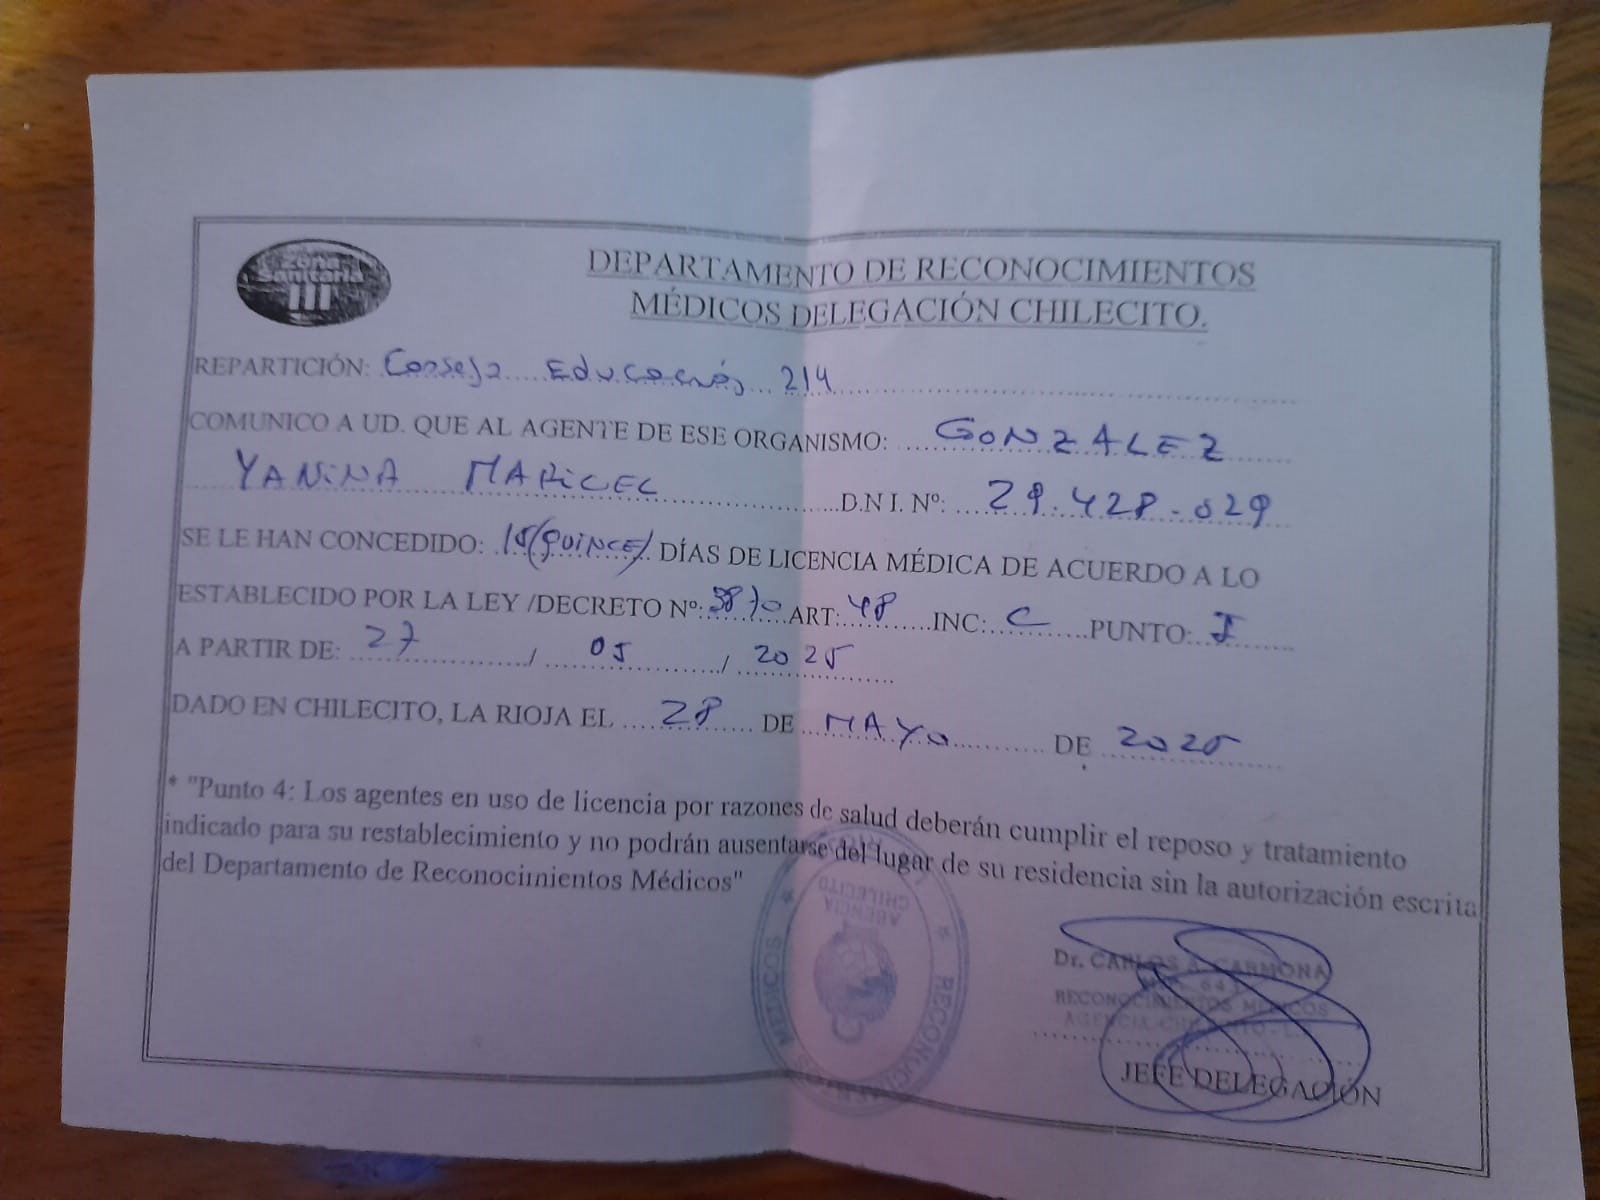 Zona
Sanitaria
III
DEPARTAMENTO DE RECONOCIMIENTOS
MÉDICOS DELEGACIÓN CHILECITO.
REPARTICIÓN: Consejo Educación 214
COMUNICO A UD. QUE AL AGENTE DE ESE ORGANISMO: GONZALEZ
YANINA MARICEL D.N I. Nº: 29.428.029
SE LE HAN CONCEDIDO: 15 (QUINCE) DÍAS DE LICENCIA MÉDICA DE ACUERDO A LO
ESTABLECIDO POR LA LEY /DECRETO Nº: 3870 ART: 48 INC: C PUNTO: I
A PARTIR DE: 27 / 05 / 2025
DADO EN CHILECITO, LA RIOJA EL 28 DE MAYO DE 2025
* "Punto 4: Los agentes en uso de licencia por razones de salud deberán cumplir el reposo y tratamiento
indicado para su restablecimiento y no podrán ausentarse del lugar de su residencia sin la autorización escrita
del Departamento de Reconocimientos Médicos"
RECONOCIMIENTOS MEDICOS
AGENCIA
CHILECITO
Dr. CARLOS A. CARMONA
RECONOCIMIENTOS MEDICOS
AGENCIA CHILECITO
JEFE DELEGACIÓN